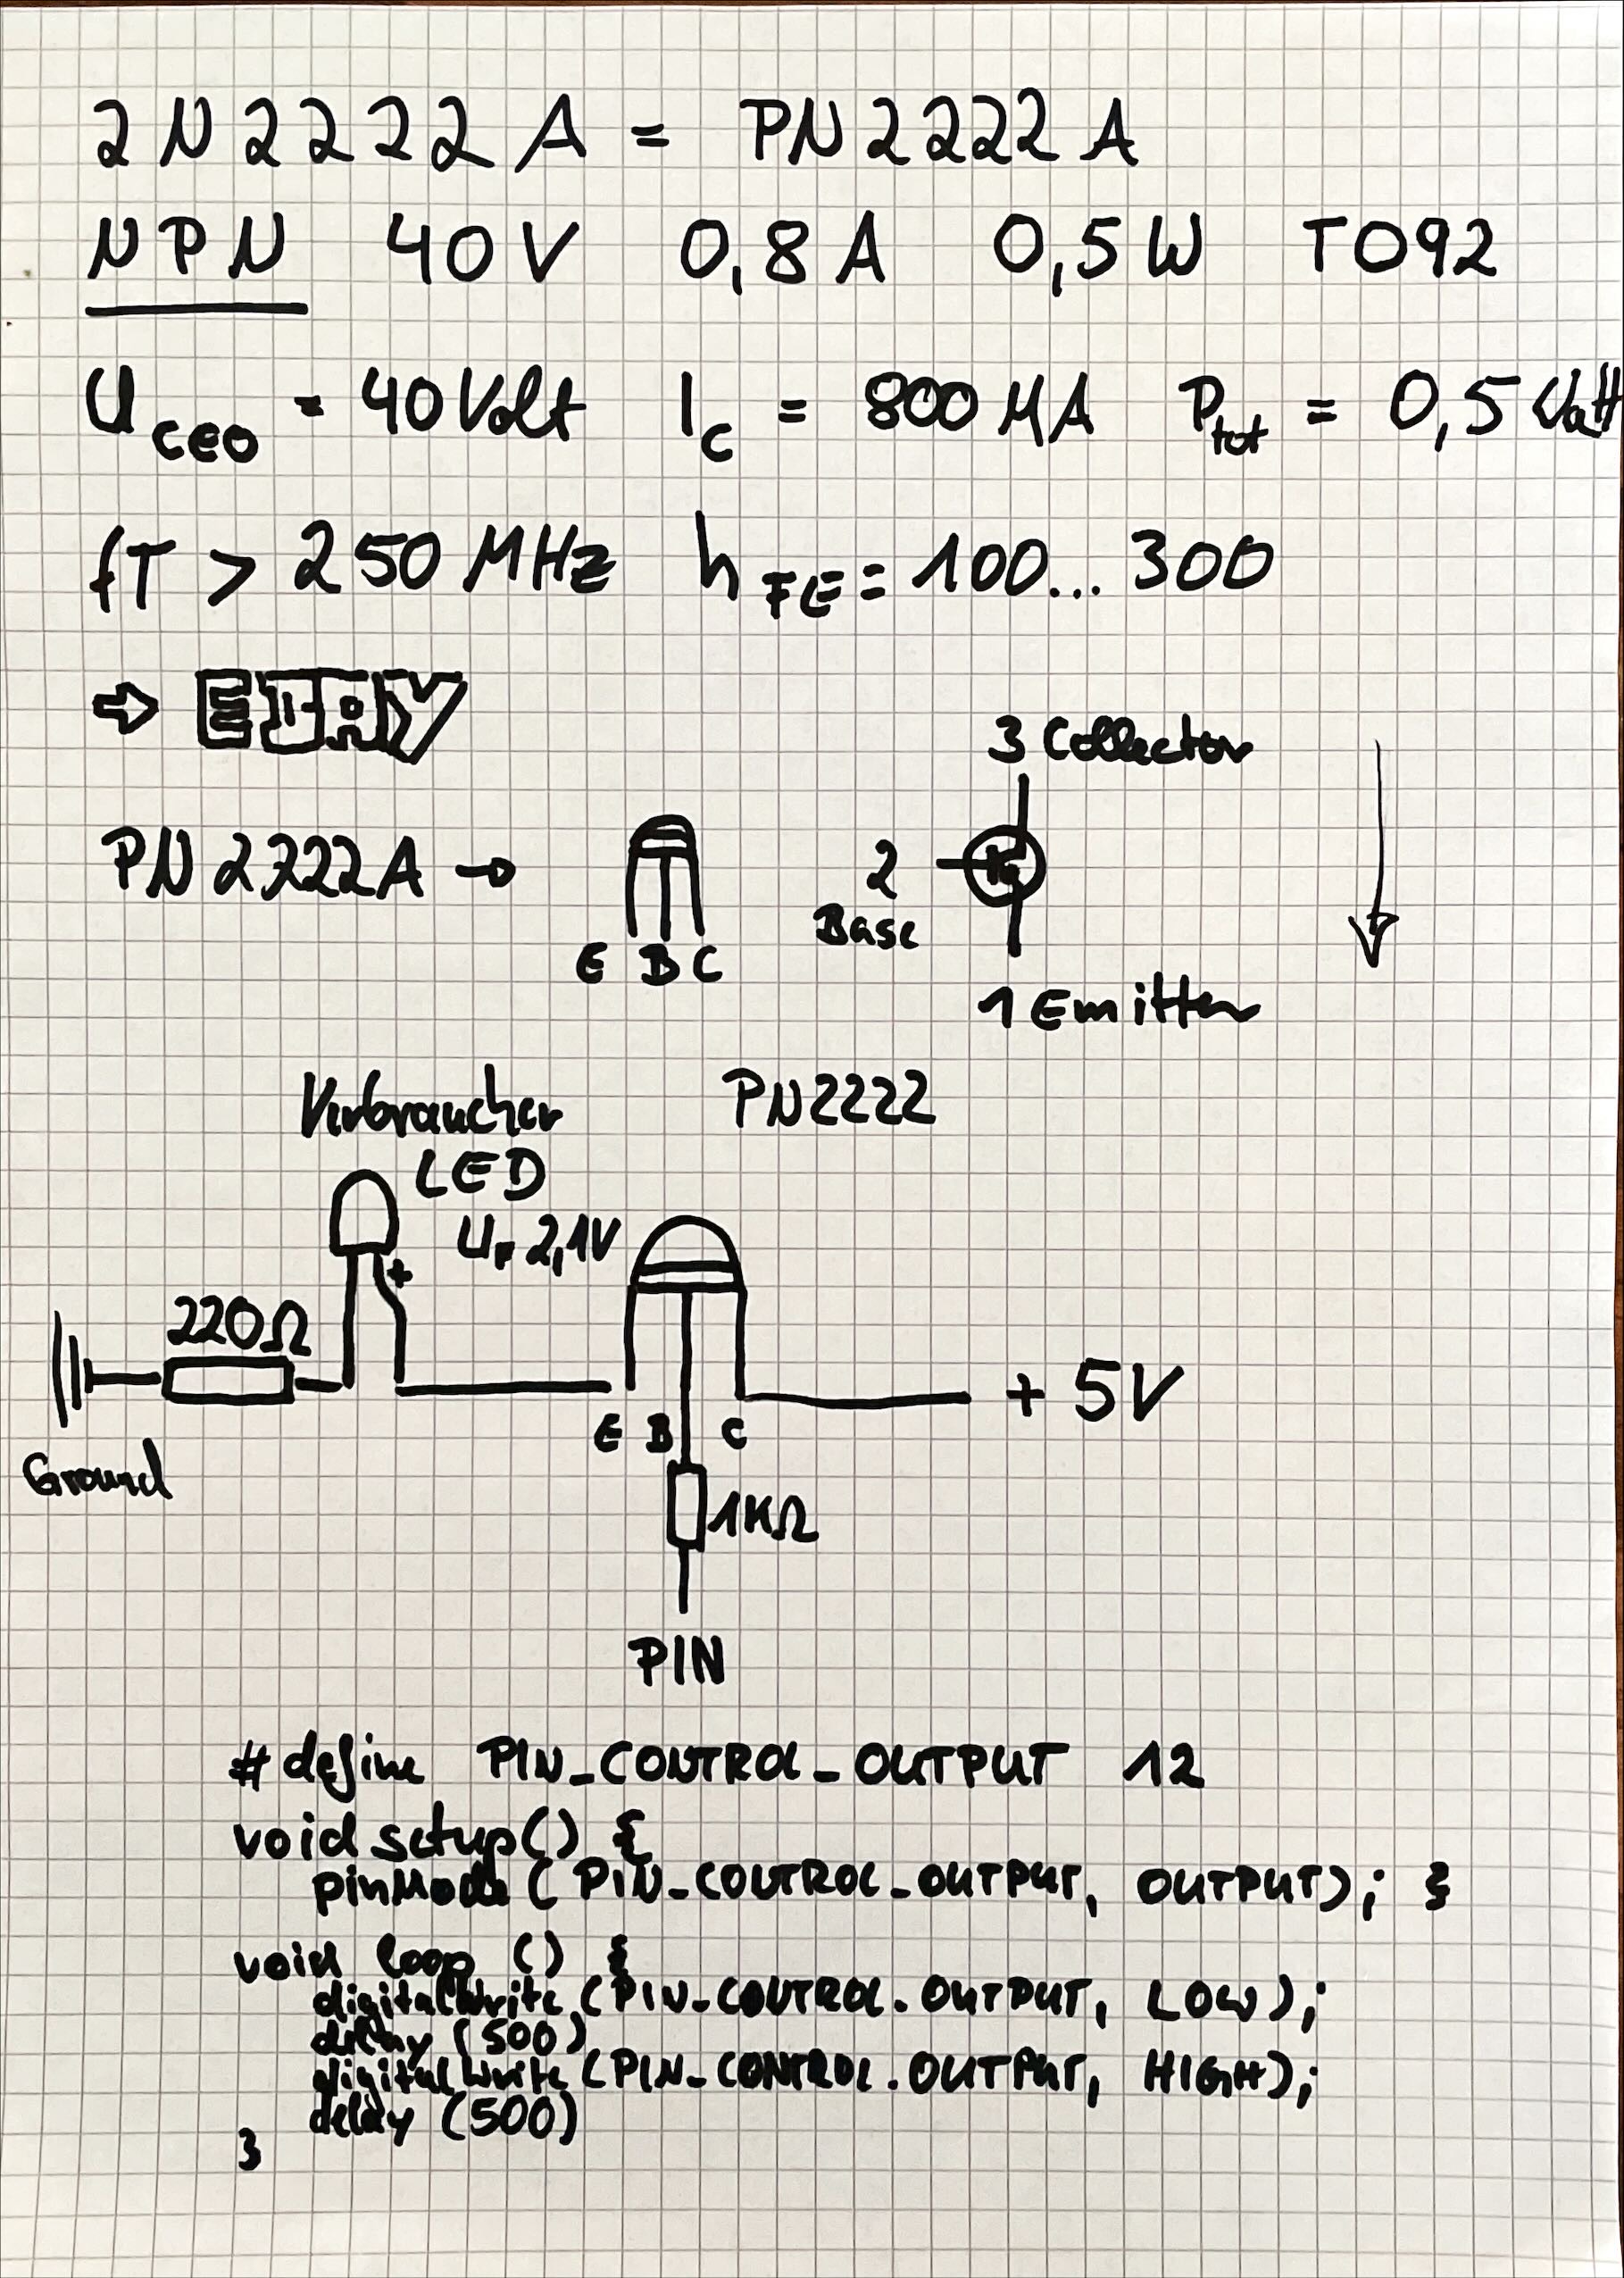 2N2222A = PN2222A
NPN 40V 0,8A 0,5W TO92
UCEO = 40Volt IC = 800 MA Ptot = 0,5 Watt
fT > 250 MHz hFE = 100... 300
⇒
PN2222A →
E B C
3 Collector
2
Base
1 Emitter
Verbraucher
LED
UF 2,1V
PN2222
+
220Ω
Ground
E B C
+ 5V
1KΩ
PIN
# define PIN_CONTROL_OUTPUT 12
void setup() {
pinMode ( PIN_CONTROL_OUTPUT, OUTPUT); }
void loop () {
digitalWrite (PIN_CONTROL.OUTPUT, LOW);
delay (500)
digitalWrite (PIN_CONTROL.OUTPUT, HIGH);
delay (500)
}